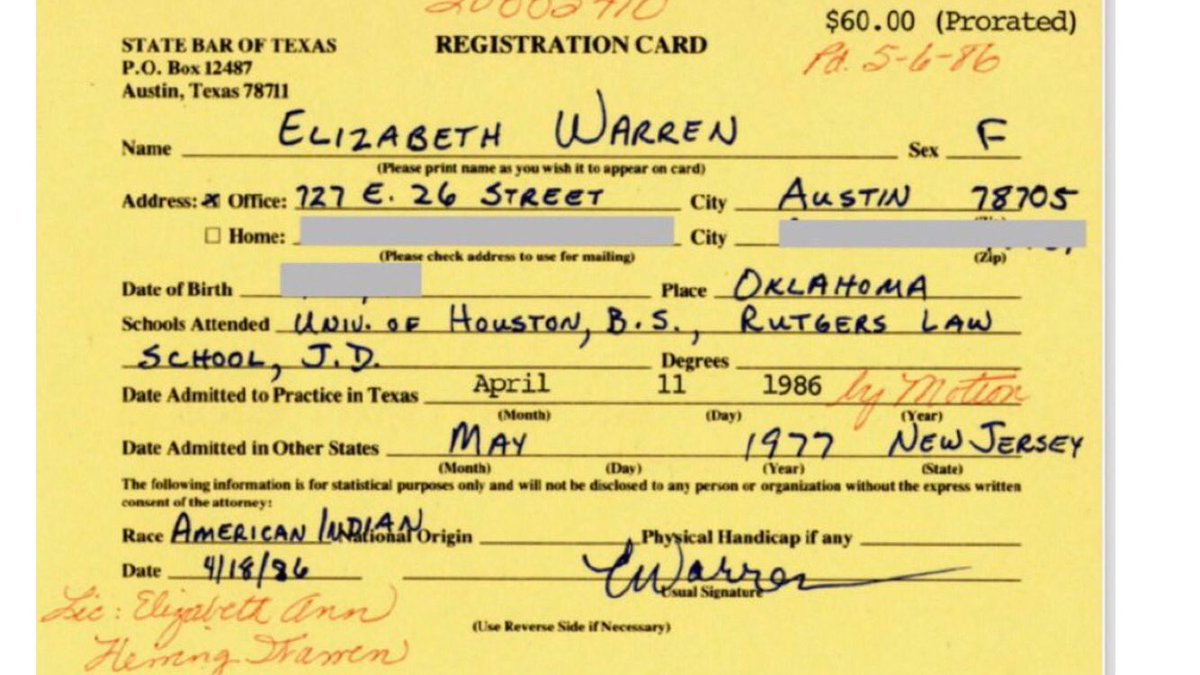 $60.00 (Prorated)
STATE BAR OF TEXAS REGISTRATION CARD Pd. 5-6-86
P.O. Box 12487
Austin, Texas 78711
Name ELIZABETH WARREN Sex F
(Please print name as you wish it to appear on card)
Address: x Office: 727 E. 26 STREET City AUSTIN 78705
☐ Home: City
(Please check address to use for mailing) (Zip)
Date of Birth Place OKLAHOMA
Schools Attended UNIV. OF HOUSTON, B.S., RUTGERS LAW
SCHOOL, J.D. Degrees
Date Admitted to Practice in Texas April 11 1986 by Motion
(Month) (Day) (Year)
Date Admitted in Other States MAY 1977 NEW JERSEY
(Month) (Day) (Year) (State)
The following information is for statistical purposes only and will not be disclosed to any person or organization without the express written
consent of the attorney:
Race AMERICAN INDIAN National Origin Physical Handicap if any
Date 4/18/86 EWarren
Usual Signature
Lic: Elizabeth Ann
Herring Warren
(Use Reverse Side if Necessary)